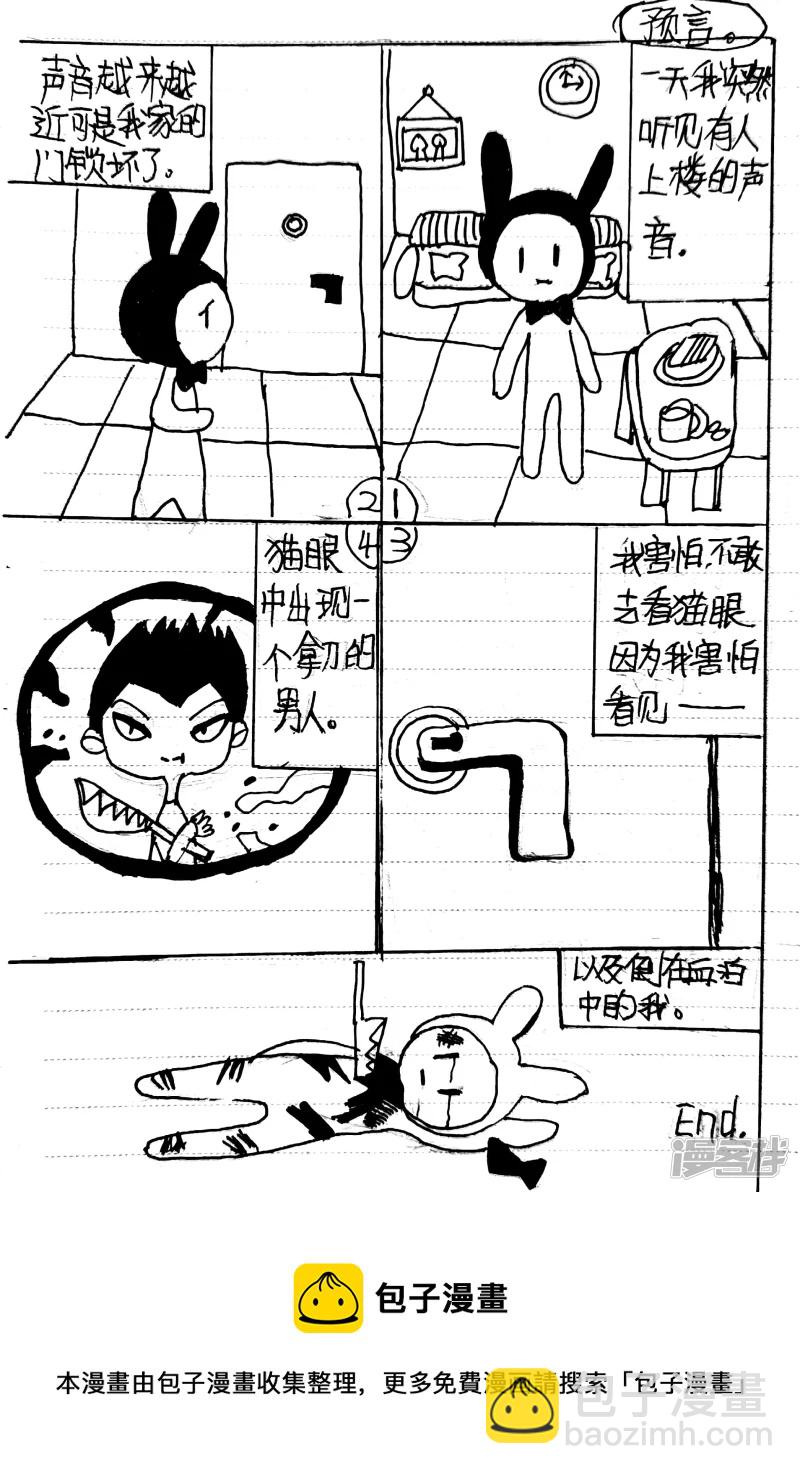 预言。
一天我突然
听见有人
上楼的声
音.
1
声音越来越
近可是我家的
门锁坏了。
2
我害怕.不敢
去看猫眼
因为我害怕
看见——
3
猫眼
中出现一
个拿刀的
男人。
4
以及倒在血泊
中的我。
End.
漫客栈
包子漫畫
本漫畫由包子漫畫收集整理，更多免費漫画請搜索「包子漫畫」
包子漫畫
baozimh.com